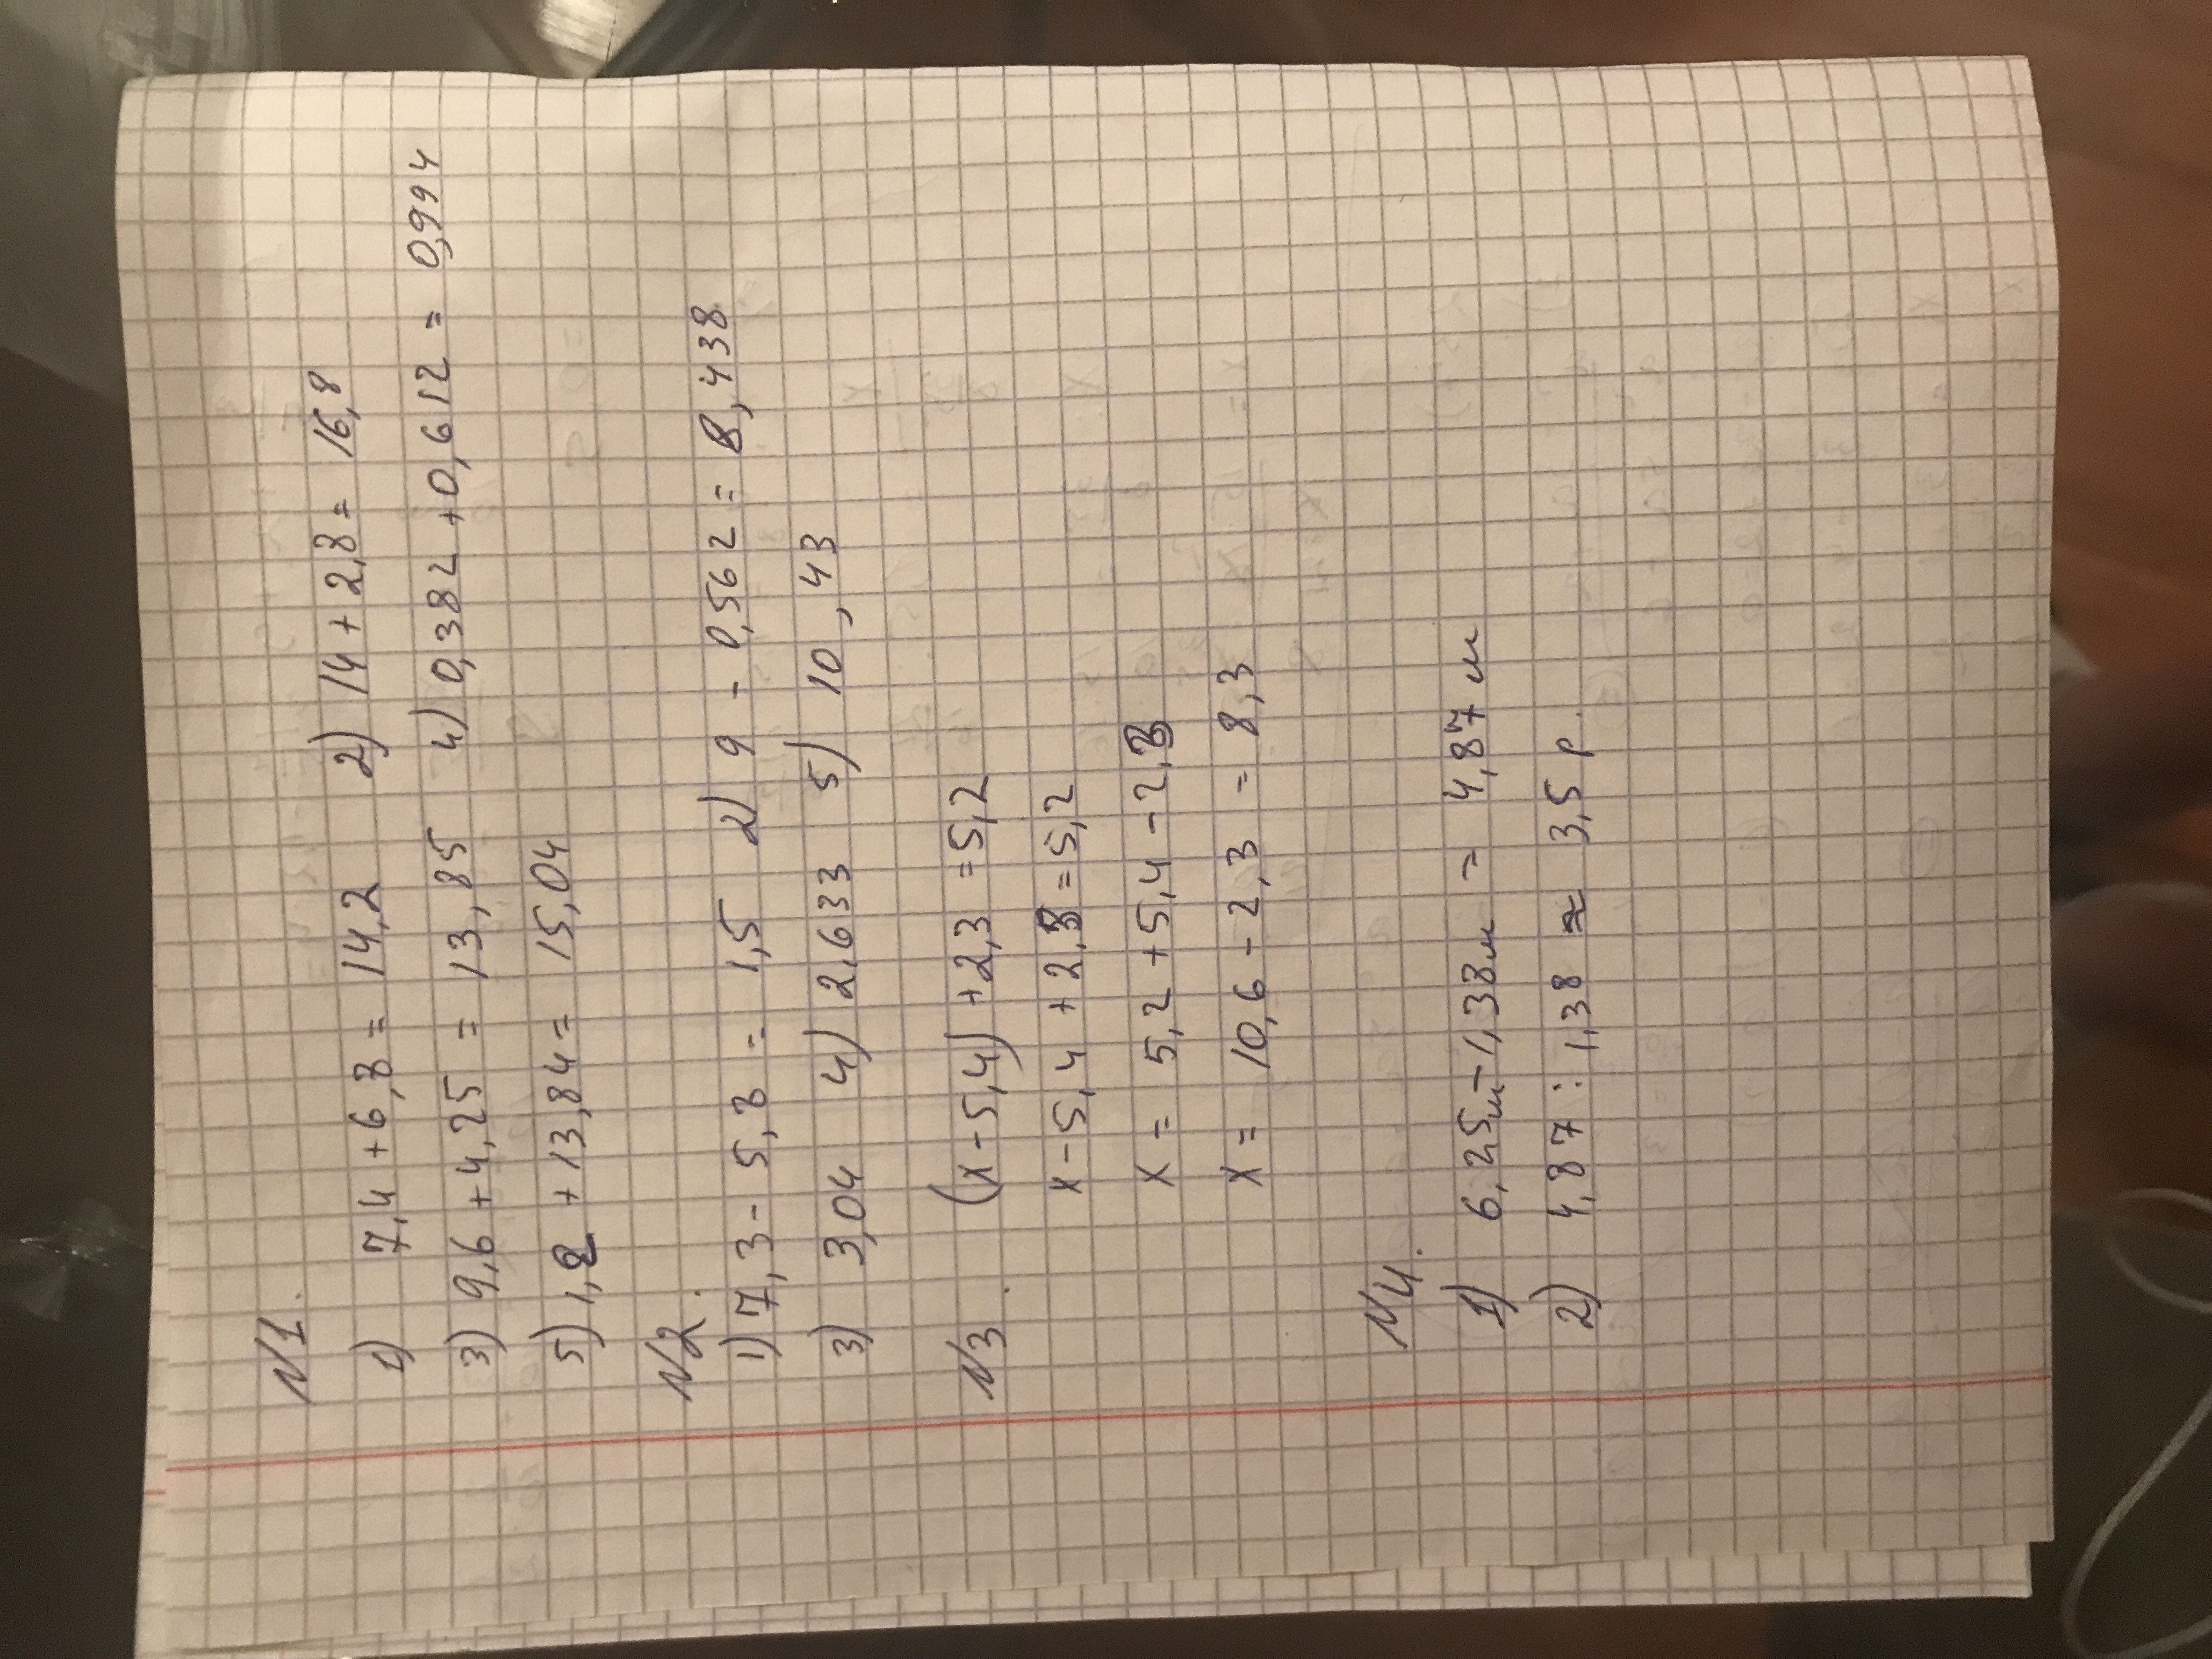 №1.
1) 7,4 + 6,8 = 14,2 2) 14 + 2,8 = 16,8
3) 9,6 + 4,25 = 13,85 4) 0,382 + 0,612 = 0,994
5) 1,2 + 13,84 = 15,04
№2.
1) 7,3 - 5,8 = 1,5 2) 9 - 0,562 = 8,438
3) 3,04 4) 2,633 5) 10,43
№3. (x - 5,4) + 2,3 = 5,2
x - 5,4 + 2,3 = 5,2
x = 5,2 + 5,4 - 2,3
x = 10,6 - 2,3 = 8,3
№4.
1) 6,25м - 1,38м = 4,87 м
2) 4,87 : 1,38 ≈ 3,5 р.